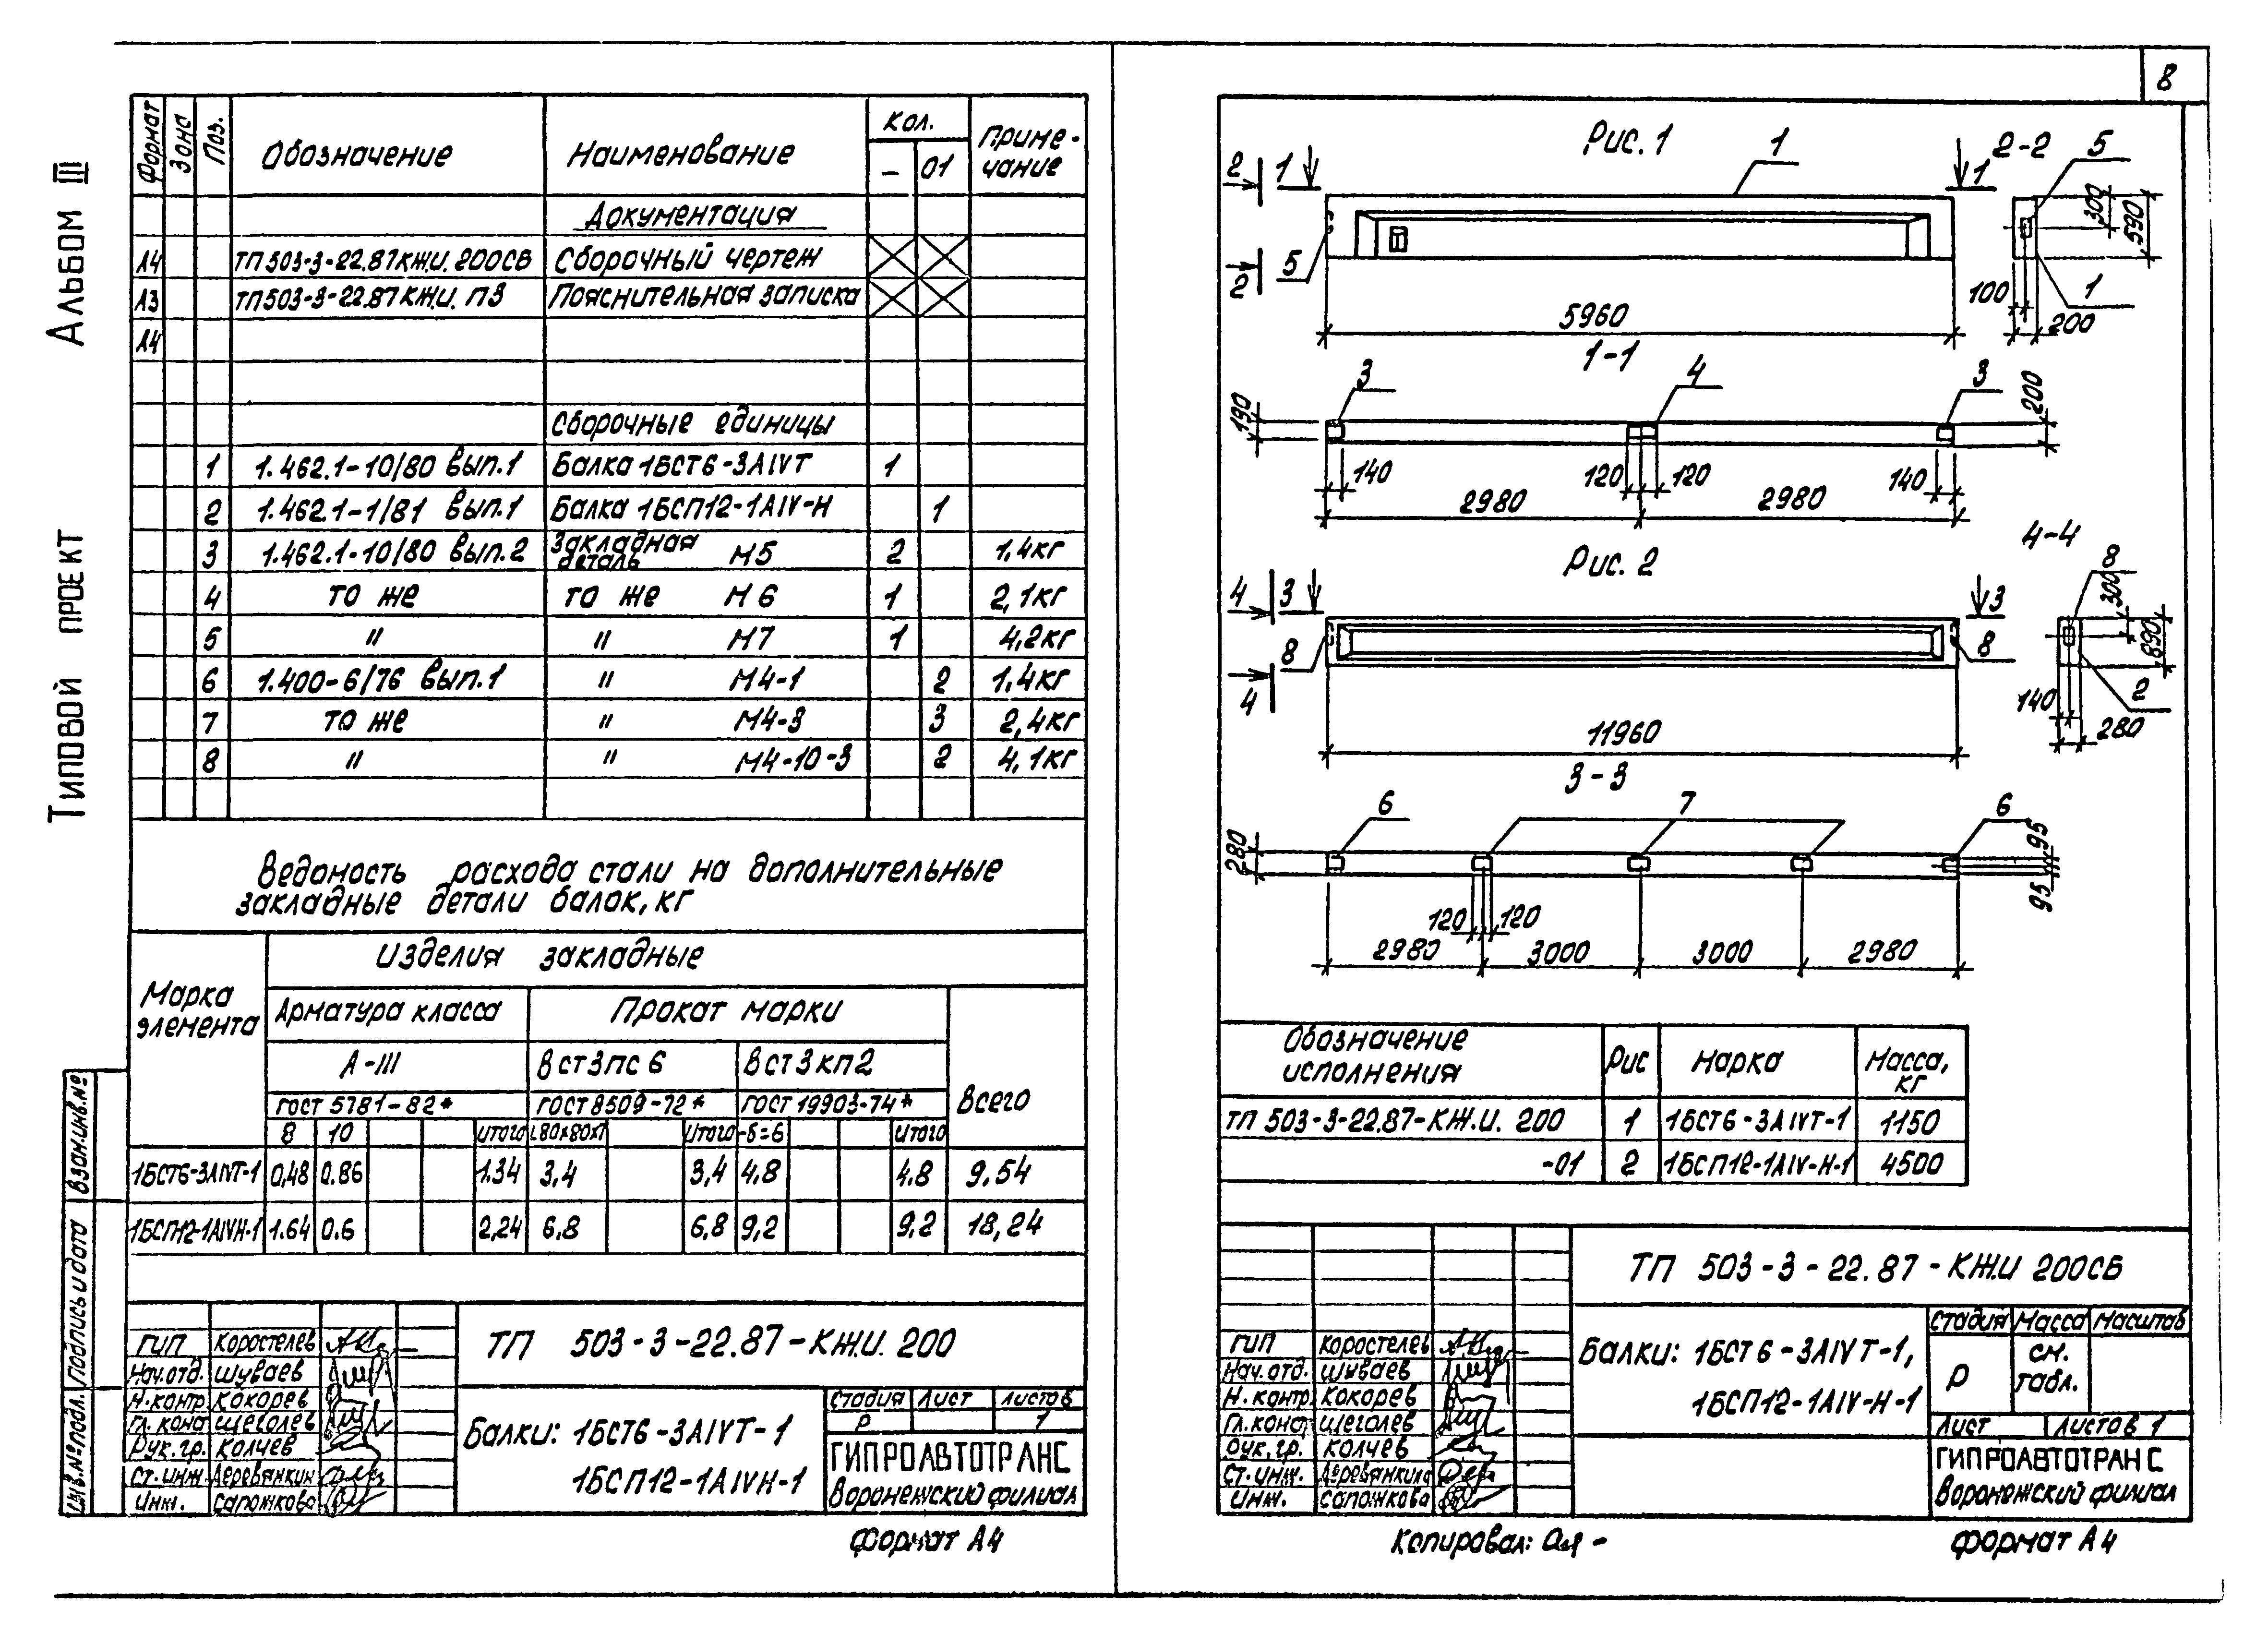 Альбом III
Типовой проект
8
Формат Зона Поз. Обозначение Наименование Кол. Приме-
чание
– 01
Документация
А4 ТП 503-3-22.87 КЖ.И. 200СБ Сборочный чертеж
А3 ТП 503-3-22.87 КЖ.И. ПЗ Пояснительная записка
А4
Сборочные единицы
1 1.462.1-10/80 вып.1 Балка 1БСТ6-3АIVТ 1
2 1.462.1-1/81 вып.1 Балка 1БСП12-1АIV-Н 1
3 1.462.1-10/80 вып.2 Закладная деталь М5 2 1,4кг
4 то же то же М6 1 2,1кг
5 " " М7 1 4,2кг
6 1.400-6/76 вып.1 " М4-1 2 1,4кг
7 то же " М4-3 3 2,4кг
8 " " М4-10-3 2 4,1кг
Ведомость расхода стали на дополнительные
закладные детали балок, кг
Марка
элемента
Изделия закладные
Арматура класса Прокат марки
Всего
А-III ВСт3пс6 ВСт3кп2
ГОСТ 5781-82* ГОСТ 8509-72* ГОСТ 19903-74*
8 10 Итого L80х80х7 Итого -δ=6 Итого
1БСТ6-3АIVТ-1 0,48 0.86 1.34 3,4 3,4 4,8 4.8 9,54
1БСП12-1АIVН-1 1.64 0.6 2,24 6,8 6,8 9,2 9,2 18,24
Взам.инв.№
Подпись и дата
Инв.№ подл.
ГИП Коростелев
Нач.отд. Шуваев
Н.контр Кокорев
Гл.конс Щеголев
Рук.гр. Колчев
Ст.инж Деревянкин
Инж. Сапожкова
ТП 503-3-22.87-КЖ.И. 200
Балки: 1БСТ6-3АIVТ-1
1БСП12-1АIVН-1
Стадия Лист Листов
Р 1
ГИПРОАВТОТРАНС
Воронежский филиал
Формат А4
Рис.1 1
2-2 5
2 1 1
5
2
300
590
100 1
200
5960
1-1
3 4 3
190 200
140 120 120 140
2980 2980
Рис. 2
4-4
4 3 3
8
300
890
8 8
4
2
140
280
11960
3-3
6 7 6
280
95
95
120 120
2980 3000 3000 2980
Обозначение
исполнения
Рис Марка Масса,
кг
ТП 503-3-22.87-КЖ.И. 200 1 1БСТ6-3АIVТ-1 1150
-01 2 1БСП12-1АIV-Н-1 4500
ТП 503-3-22.87-КЖ.И 200СБ
ГИП Коростелев
Нач.отд. Шуваев
Н.контр Кокорев
Гл.конс, Щеголев
Рук.гр. Колчев
Ст.инж. Деревянкина
Инж. Сапожкова
Балки: 1БСТ6-3АIVТ-1,
1БСП12-1АIV-Н-1
Стадия Масса Масштаб
Р см.
табл.
Лист Листов 1
ГИПРОАВТОТРАНС
Воронежский филиал
Копировал:
Формат А4